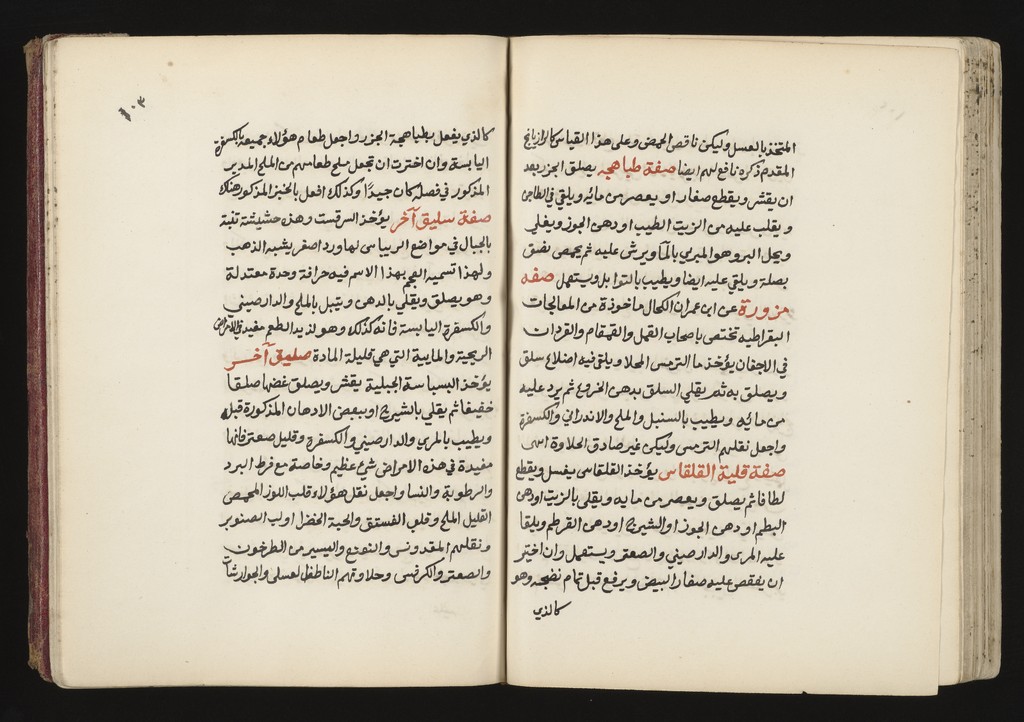 المتخذ بالعسل وليكن ناقص الحمض وعلى هذا القياس كالرازيانج
المقدم ذكره نافع لهم ايضا صفة طباهجه يصلق الجزر بعد
ان يقشر ويقطع صغار او يعصر من مائه ويلقي في الطاجن
ويقلب عليه من الزيت الطيب او دهن الجوز ويغلي
ويحل البر وهو المبري بالماء ويرش عليه ثم يحمص نصف
بصلة ويلقي عليه ايضا ويطيب بالتوابل ويستعمل صفه
مزورة عن ابن عمران الكحال ماخوذة من المعالجات
البقراطيه تختص باصحاب القمل والقمقام والقردان
في الاجفان يؤخذ ما الترمس المحلا ويلقي فيه اضلاع سلق
ويصلق به ثم يقلي السلق بدهن الخروع ثم يرد عليه
من مائه ويطيب بالسنبل والملح والاندراني والكسفرة
واجعل نقلهم الترمس وليكن غير صادق الحلاوة
صفة قلية القلقاس يؤخذ القلقاس يغسل ويقطع
لطافا ثم يصلق ويعصر من مايه ويقلي بالزيت او دهن
البطم او دهن الجوز او الشيرج او دهن القرطم ويلقا
عليه المري والدارصيني والصعتر ويستعمل وان اختير
ان يفقص عليه صفار البيض ويرفع قبل تمام نضجه وهو
كالذي
١٠٤
كالذي يفعل بطباهجة الجزر واجعل طعام هؤلاء جميعه بالكسفرة
اليابسة وان اخترت ان تجعل ملح طعامهم من الملح المدبر
المذكور في فصله كان جيدا وكذلك افعل بالخبز المذكور هناك
صفة سليق آخر يؤخذ السرقست وهذه حشيشة تنبة
بالجبال في مواضع الريباس لها ورد اصفر يشبه الذهب
ولهذا تسميه العجم بهذا الاسم فيه حرافة وحدة معتدلة
وهو يصلق ويقلي بالدهن ويتبل بالملح والدارصيني
والكسفرة اليابسة فانه كذلك وهو لذيد الطعم مفيد في الامراض
الريحية والمايية التي هي قليلة المادة صليق آخر
يؤخذ البسباسة الجبلية يقشر ويصلق غضها صلقا
خفيفا ثم يقلي بالشيرج او ببعض الادهان المذكورة قبل
ويطيب بالمري والدارصيني والكسفرة وقليل صعتر فانها
مفيدة في هذه الامراض شيء عظيم وخاصة مع فرط البرد
والرطوبة والنسا واجعل نقل هؤلاء قلب اللوز المحمص
القليل الملح وقلب الفستق والحبة الخضرا ولب الصنوبر
ونقلهم المقدونس والنعنع واليسير من الطرخون
والصعتر والكرفس وحلاوتهم الناطف العسلي والجوارشات